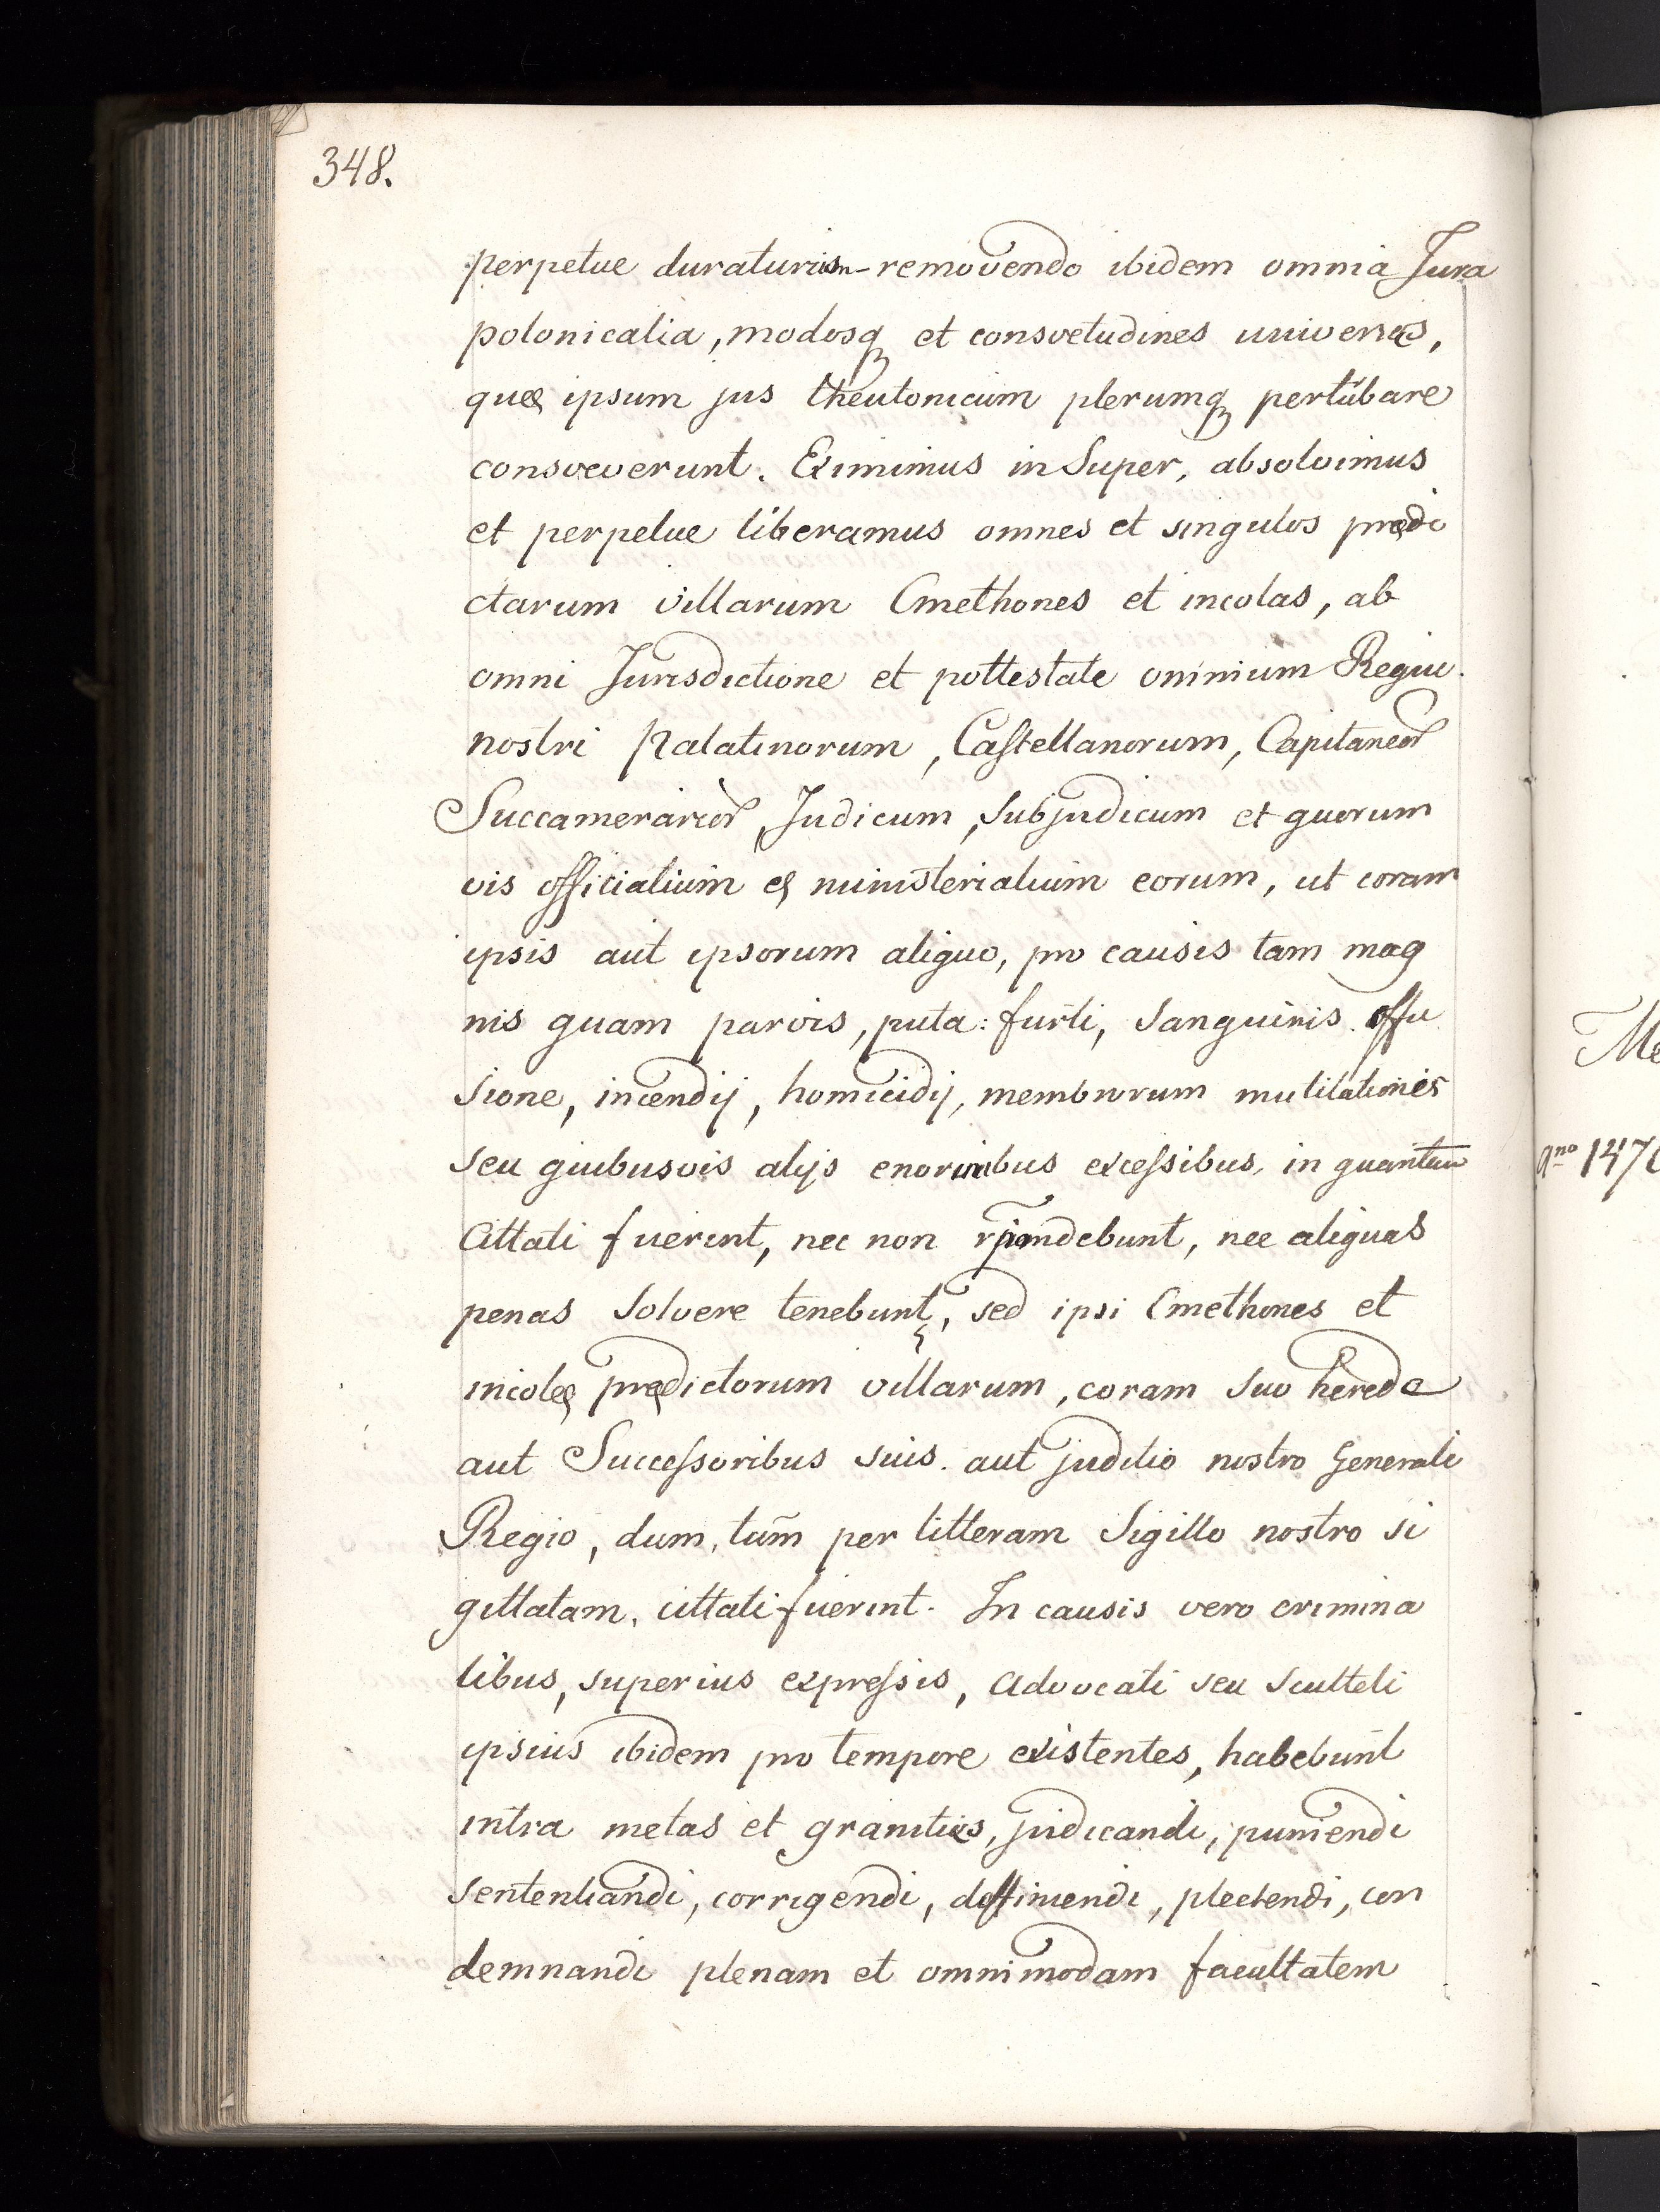 348.
perpetue duraturum - removendo ibidem omnia Jura
polonicalia, modosq₃ et consvetudines universas,
quę ipsum jus theutonicum plerumq₃ pertúbare
consveverunt. Eximimus in Super, absolvimus
et perpetue liberamus omnes et singulos prędi
ctarum villarum Cmethones et incolas, ab
omni Jurisdictione et pottestate omnium Regni
nostri Palatinorum, Castellanorum, Capitaneor
Succamerarior, Judicum, Subjudicum et quorum
vis officialium et ministerialium eorum, ut coram
ipsis aut ipsorum aliquo, pro causis tam mag
nis quam parvis, puta: furti, Sanguinis effu
sione, incendij, homicidij, membrorum mutilationis
seu quibusvis alijs enormibus excessibus, in quantum
Cittati fuerint, nec non rpondebunt, nec aliquas
penas solvere tenebunt, sed ipsi Cmethones et
incolę prędictorum villarum, coram suo herede
aut Successoribus suis. aut judicio nostro Generali
Regio, dum, tam̃ per litteram Sigillo nostro si
gillatam, cittati fuerint. In causis vero crimina
libus, superius expressis, Advocati seu Sculteti
ipsius ibidem pro tempore existentes, habebunt
intra metas et granities, judicandi, puniendi
sententiandi, corrigendi, diffiniendi, plectendi, con
demnandi plenam et omnimodam facultatem
Me
Ano 147